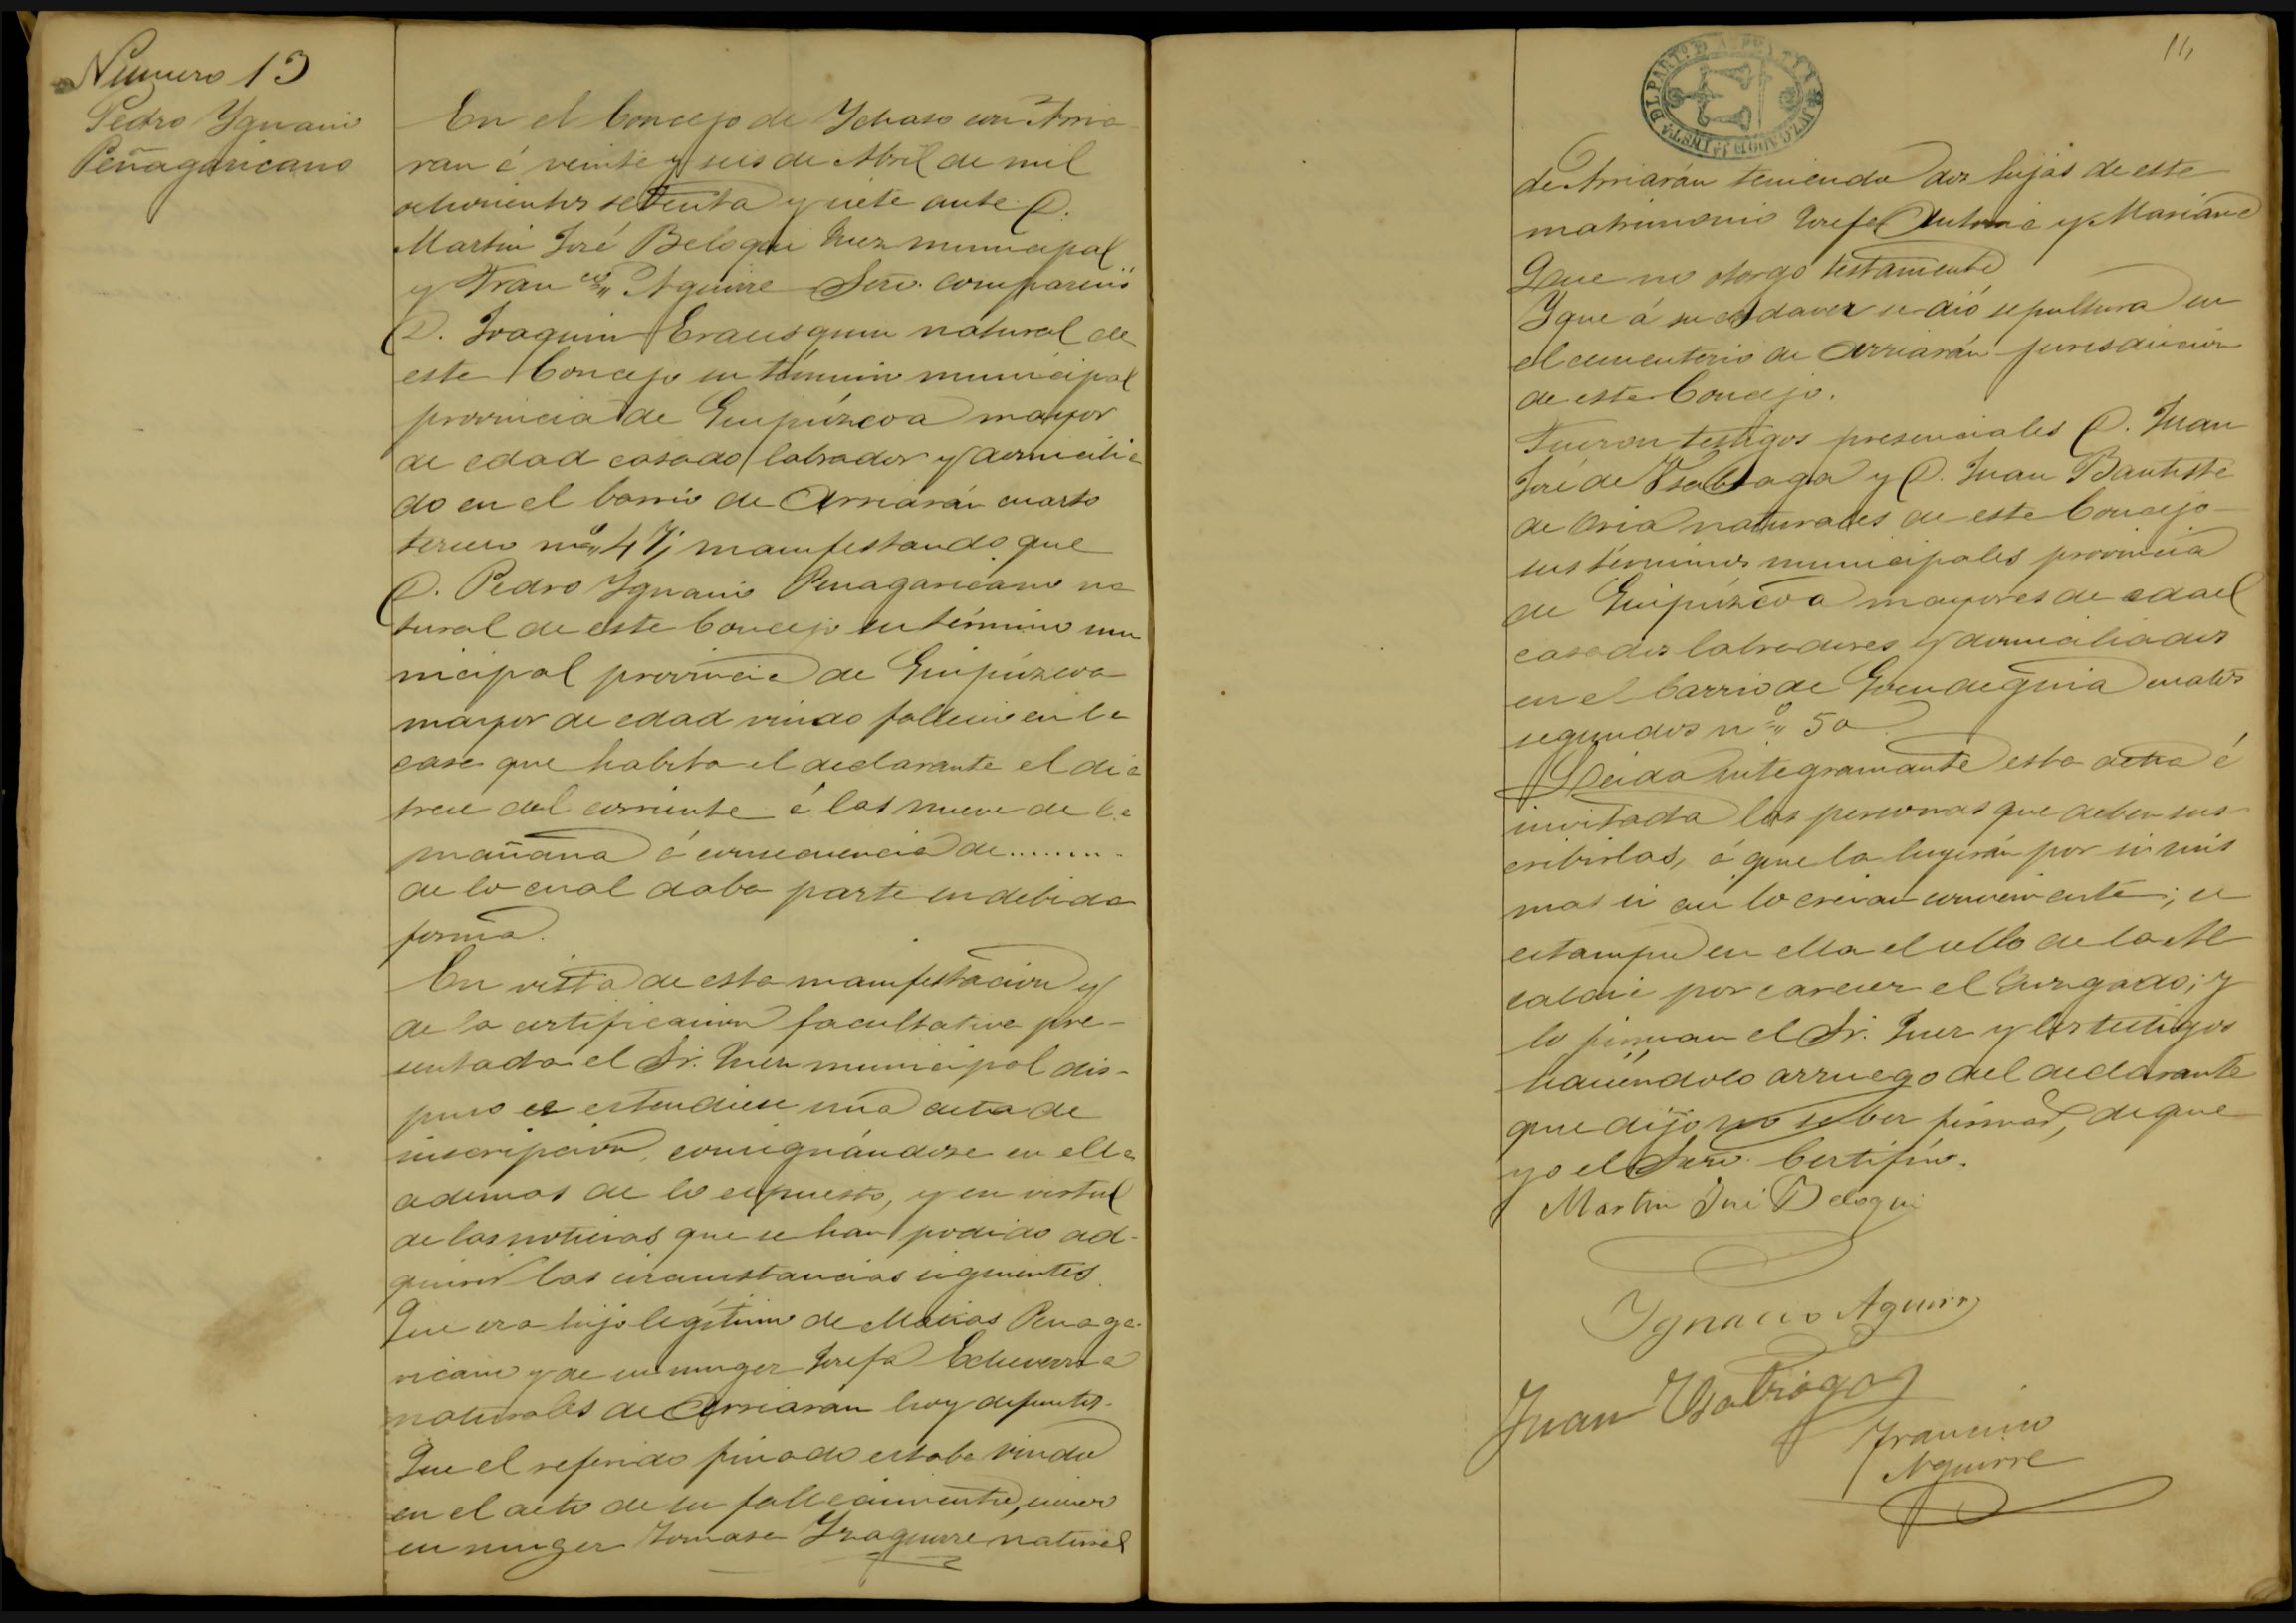 Número 13
Pedro Ygnacio
Peñagaricano
En el Concejo de Ychaso con Arria
ran á veinte y seis de Abril de mil
ochocientos setenta y siete ante D.
Martin José Beloqui Juez municipal
y Fran.co Aguirre Srio. compareció
D. Joaquin Erausquin natural de
este Concejo su término municipal
provincia de Guipúzcoa mayor
de edad casado labrador y domicilia
do en el barrio de Arriarán cuarto
tercero no. 47; manifestando que
D. Pedro Ygnacio Penagaricano na
tural de este Concejo su término mu
nicipal provincia de Guipúzcoa
mayor de edad viudo falleció en la
casa que habita el declarante el dia
trece del corriente á las nueve de la
mañana á consecuencia de.........
de lo cual daba parte en debida
forma.
En vista de esta manifestacion y
de la certificacion facultativa pre-
sentada el Sr. Juez municipal dis-
puso se estendiese una acta de
inscripcion, consignándose en ella
ademas de lo espuesto, y en virtud
de las noticias que se han podido ad-
quirir las circunstancias siguientes.
Que era hijo legítimo de Matias Penaga-
ricano y de su muger Josefa Echeverria
naturales de Arriaran hoy difuntos.
Que el referido finado estaba viudo
en el acto de su fallecimiento,
su muger Tomasa Yraguirre natural
11
JUZGADO DE 1.a INSTA. DEL PARTO. DE AZPEYTIA
de Arriarán teniendo dos hijas de este
matrimonio Josefa Antonia y Mariana
Que no otorgó testamento
Y que á su cadaver se dió sepultura en
el cementerio de Arriarán jurisdiccion
de este Concejo.
Fueron testigos presenciales D. Juan
José de Ysatsaga y D. Juan Bautista
de Oria naturales de este Concejo
sus términos municipales provincia
de Guipúzcoa mayores de edad
casados labradores y domiciliados
en el barrio de cuartos
segundos no. 50
Leida integramante esta acta é
invitada las personas que deben sus-
cribirlas, á que la leyeran por si mis
mas si asi lo creian conveniente; se
estampó en ella el sello de la Al
caldia por carecer el Juzgado; y
lo firman el Sr. Juez y los testigos
haciéndolo arruego del declarante
que dijo no saber firmar, de que
yo el Srio. Certifico.
Martin José Beloqui
Ygnacio Aguirre
Juan Ysatsaga
Francisco
Aguirre